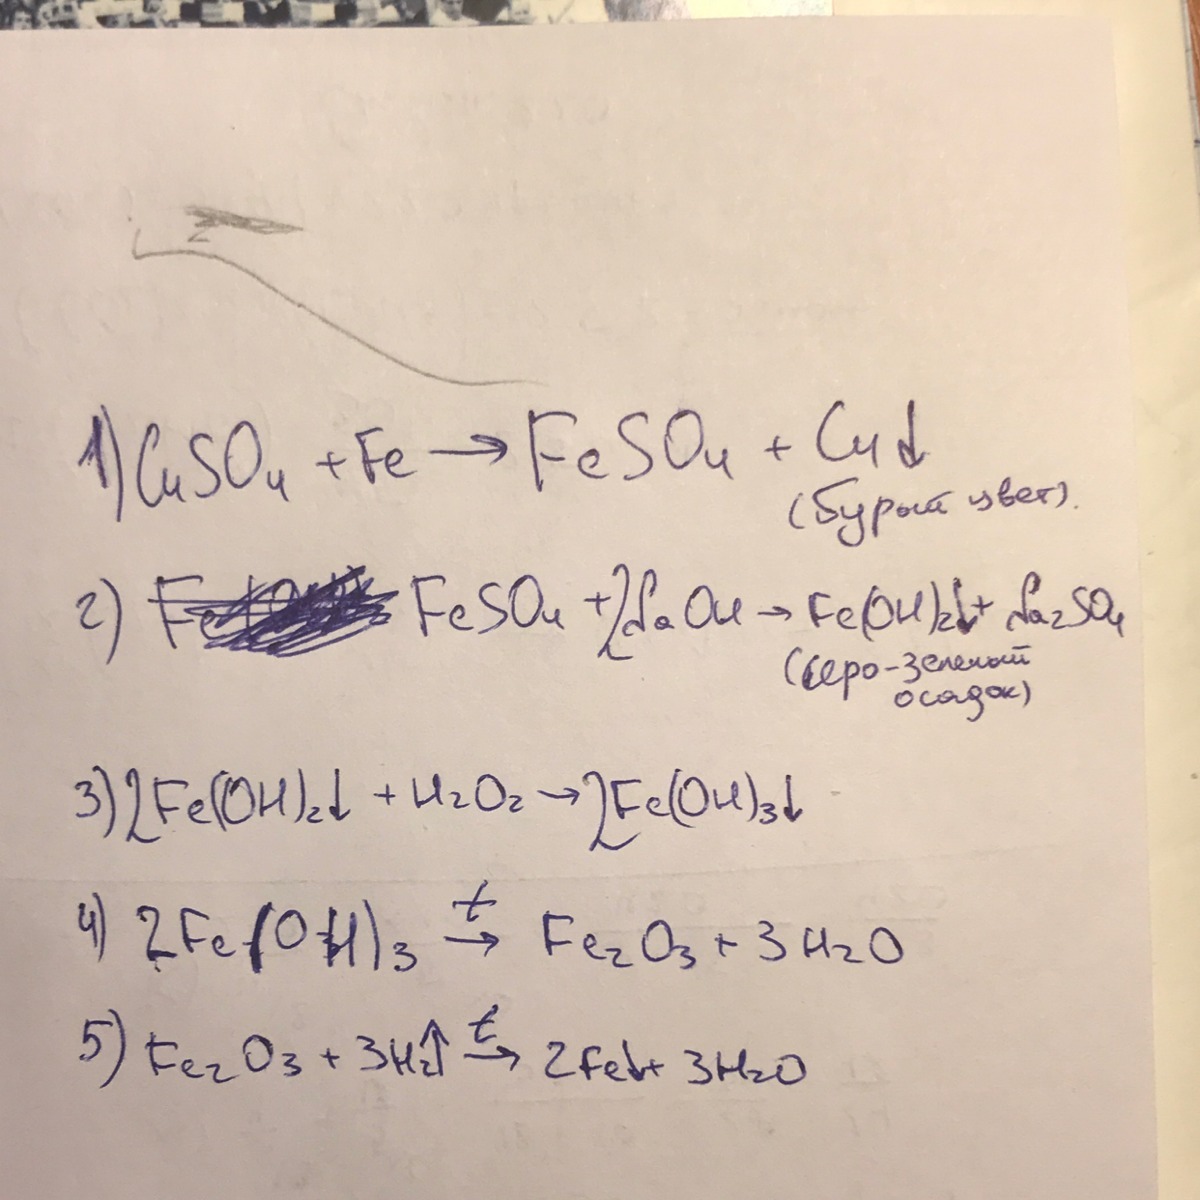 1) CuSO4 + Fe → FeSO4 + Cu↓
(бурый цвет).
2) FeSO4 + 2NaOH → Fe(OH)2↓ + Na2SO4
(серо-зеленый
осадок)
3) 2Fe(OH)2↓ + H2O2 → 2Fe(OH)3↓
4) 2Fe(OH)3 t→ Fe2O3 + 3H2O
5) Fe2O3 + 3H2↑ t→ 2Fe↓ + 3H2O